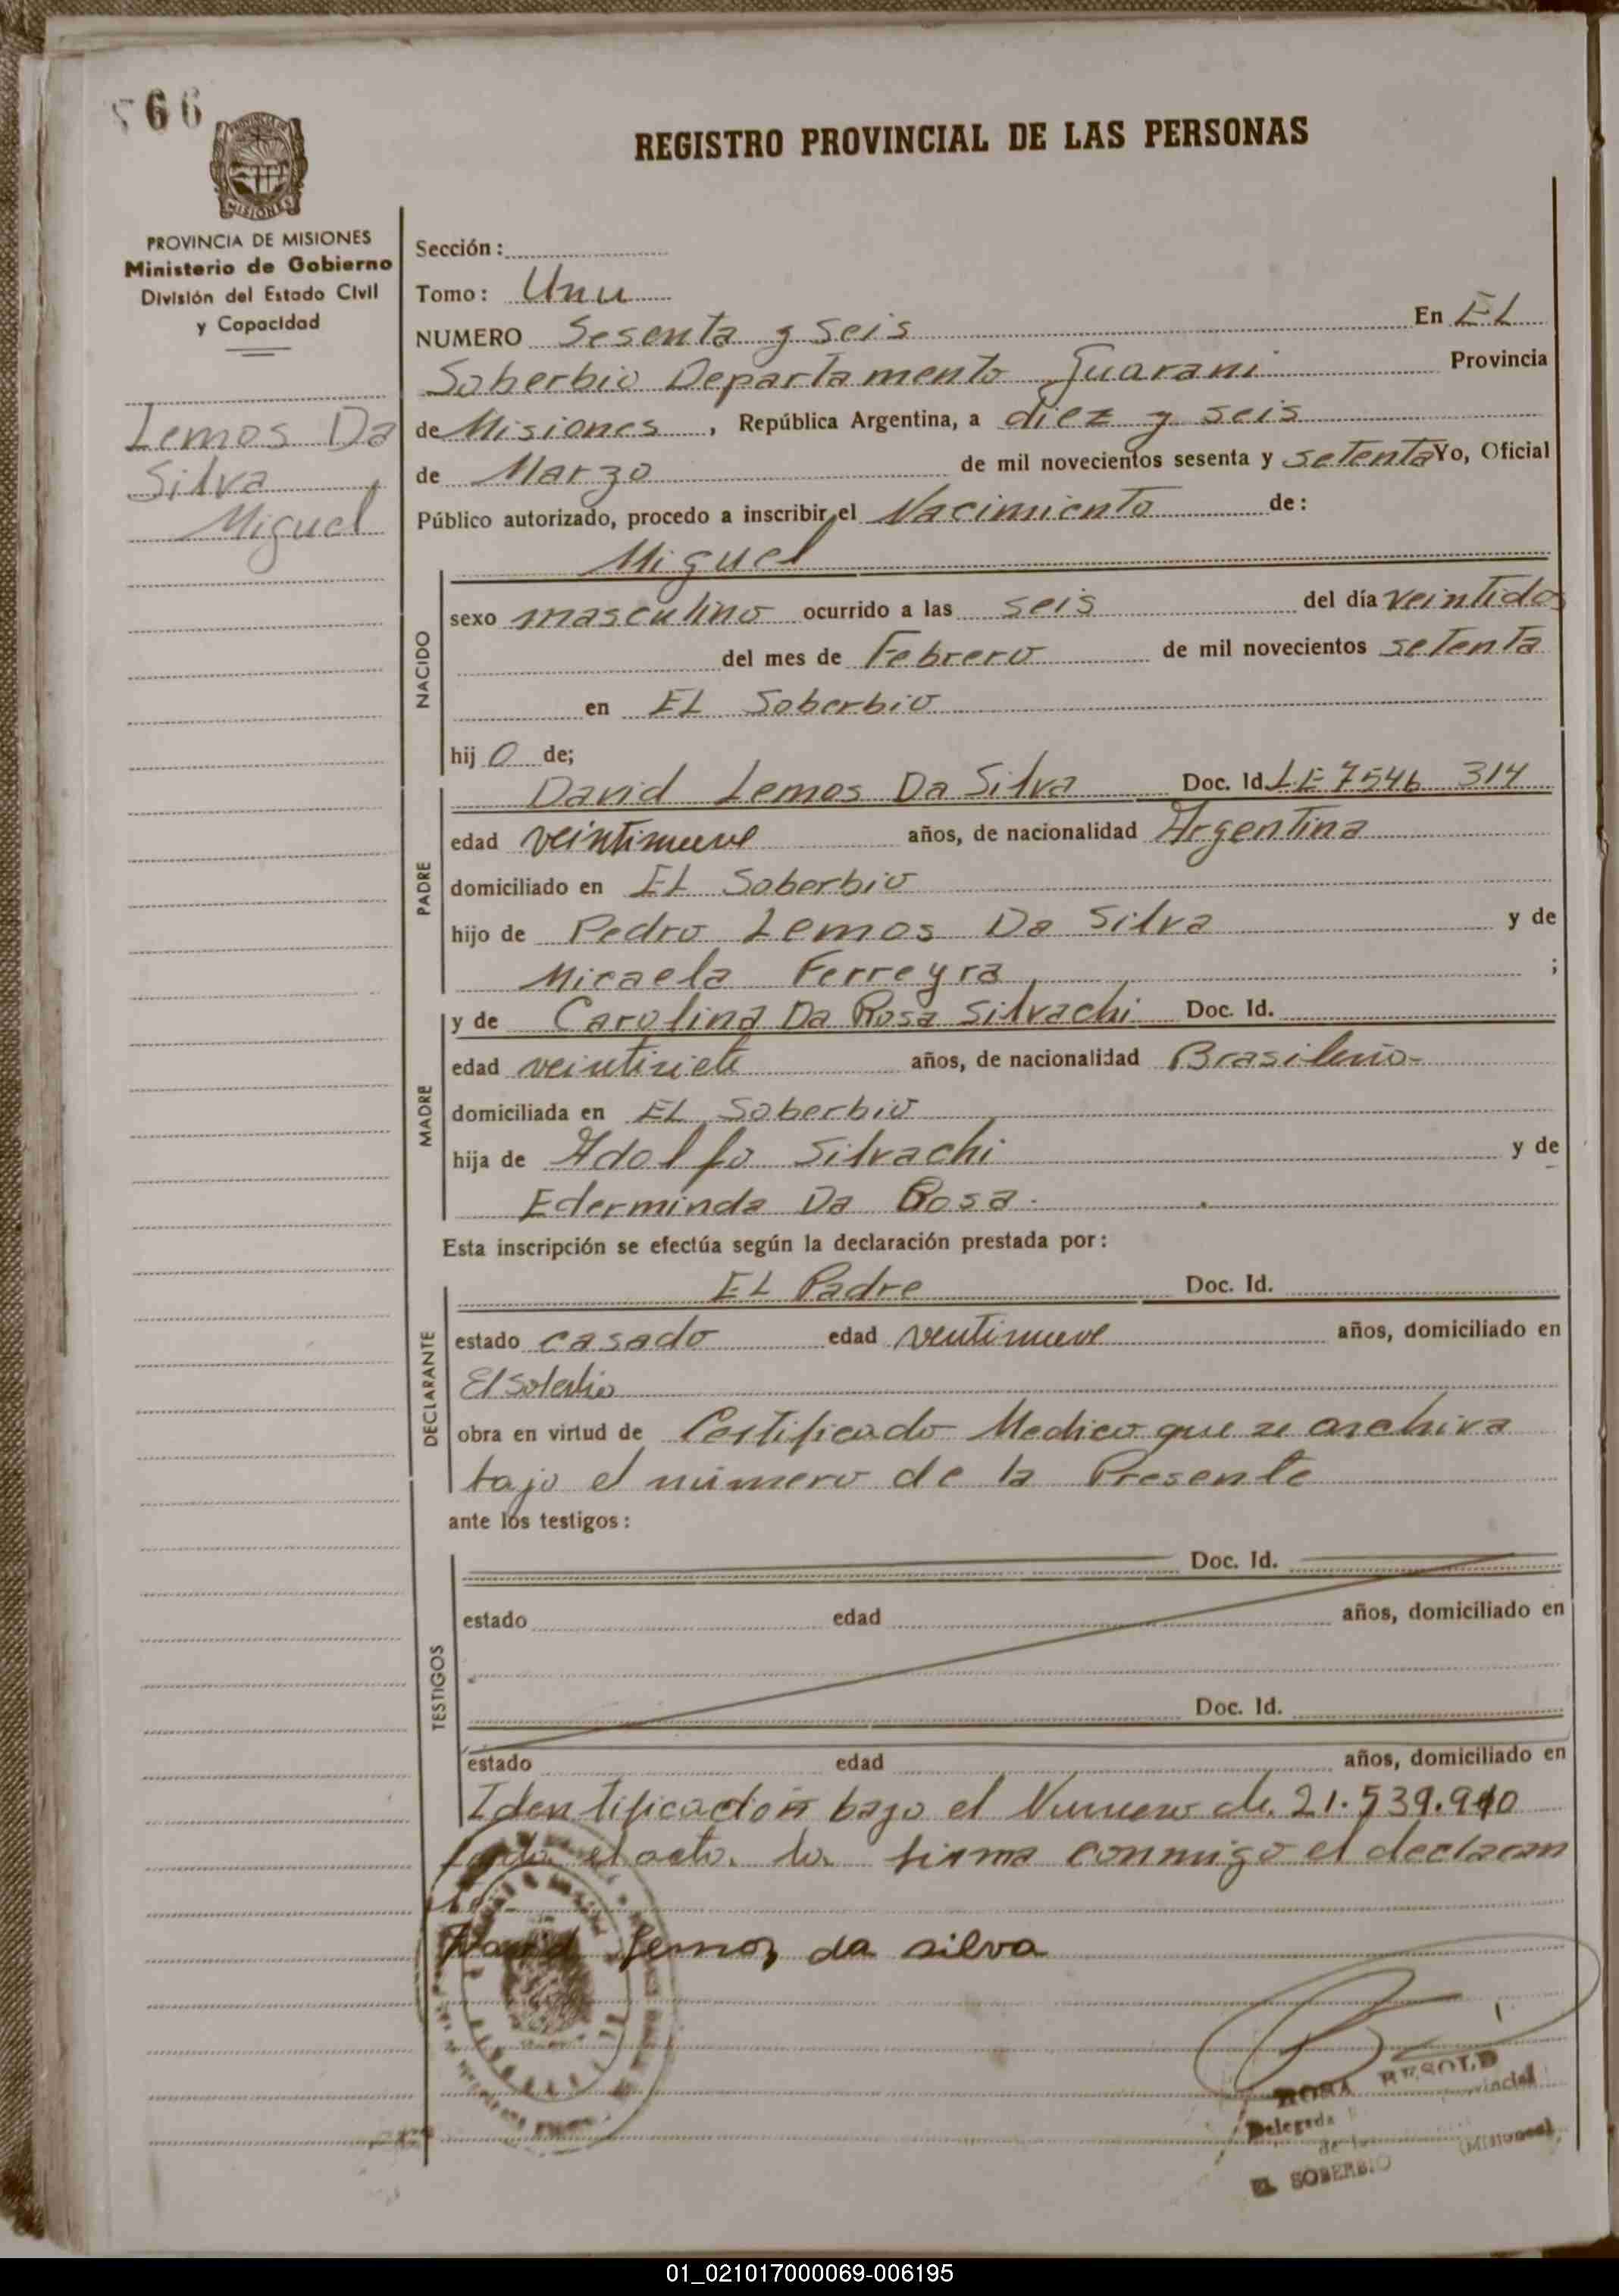 66
REGISTRO PROVINCIAL DE LAS PERSONAS
MISIONES
PROVINCIA DE MISIONES
Ministerio de Gobierno
División del Estado Civil
y Capacidad
Lemos Da
Silva
Miguel
Sección :
Tomo : Unu
NUMERO Sesenta y Seis En EL
Soberbio Departamento Guarani Provincia
de Misiones , República Argentina, a diez y seis
de Marzo de mil novecientos sesenta y setenta Yo, Oficial
Público autorizado, procedo a inscribir el Nacimiento de :
Miguel
NACIDO
sexo masculino ocurrido a las seis del día veintidos
del mes de Febrero de mil novecientos setenta
en EL Soberbio
hij o de;
PADRE
David Lemos Da Silva Doc. Id. LE 7546 314
edad veintinueve años, de nacionalidad Argentina
domiciliado en EL Soberbio
hijo de Pedro Lemos Da Silva y de
Micaela Ferreyra ;
MADRE
y de Carolina Da Rosa Silvachi Doc. Id.
edad veintisiete años, de nacionalidad Brasileño-
domiciliada en EL Soberbio
hija de Adolfo Silvachi y de
Ederminda Da Rosa.
Esta inscripción se efectúa según la declaración prestada por :
DECLARANTE
EL Padre Doc. Id.
estado casado edad ventinueve años, domiciliado en
El Soberbio
obra en virtud de Certificado Medico que se archiva
bajo el número de la Presente
ante los testigos :
TESTIGOS
Doc. Id.
estado edad años, domiciliado en
Doc. Id.
estado edad años, domiciliado en
Identificación bajo el Numero de 21.539.910
el acto. lo firma conmigo el declaran
te
David Lemos da silva
ROSA BESOLD
Delegada
de las (Misiones)
EL SOBERBIO
01_021017000069-006195